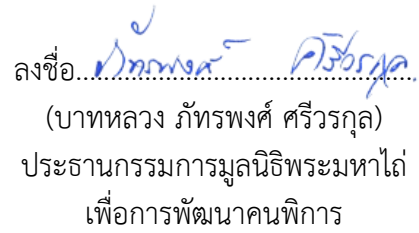 ลงชื่อ....ภัทรพงศ์....ศรีวรกุล....
(บาทหลวง ภัทรพงศ์ ศรีวรกุล)
ประธานกรรมการมูลนิธิพระมหาไถ่
เพื่อการพัฒนาคนพิการ